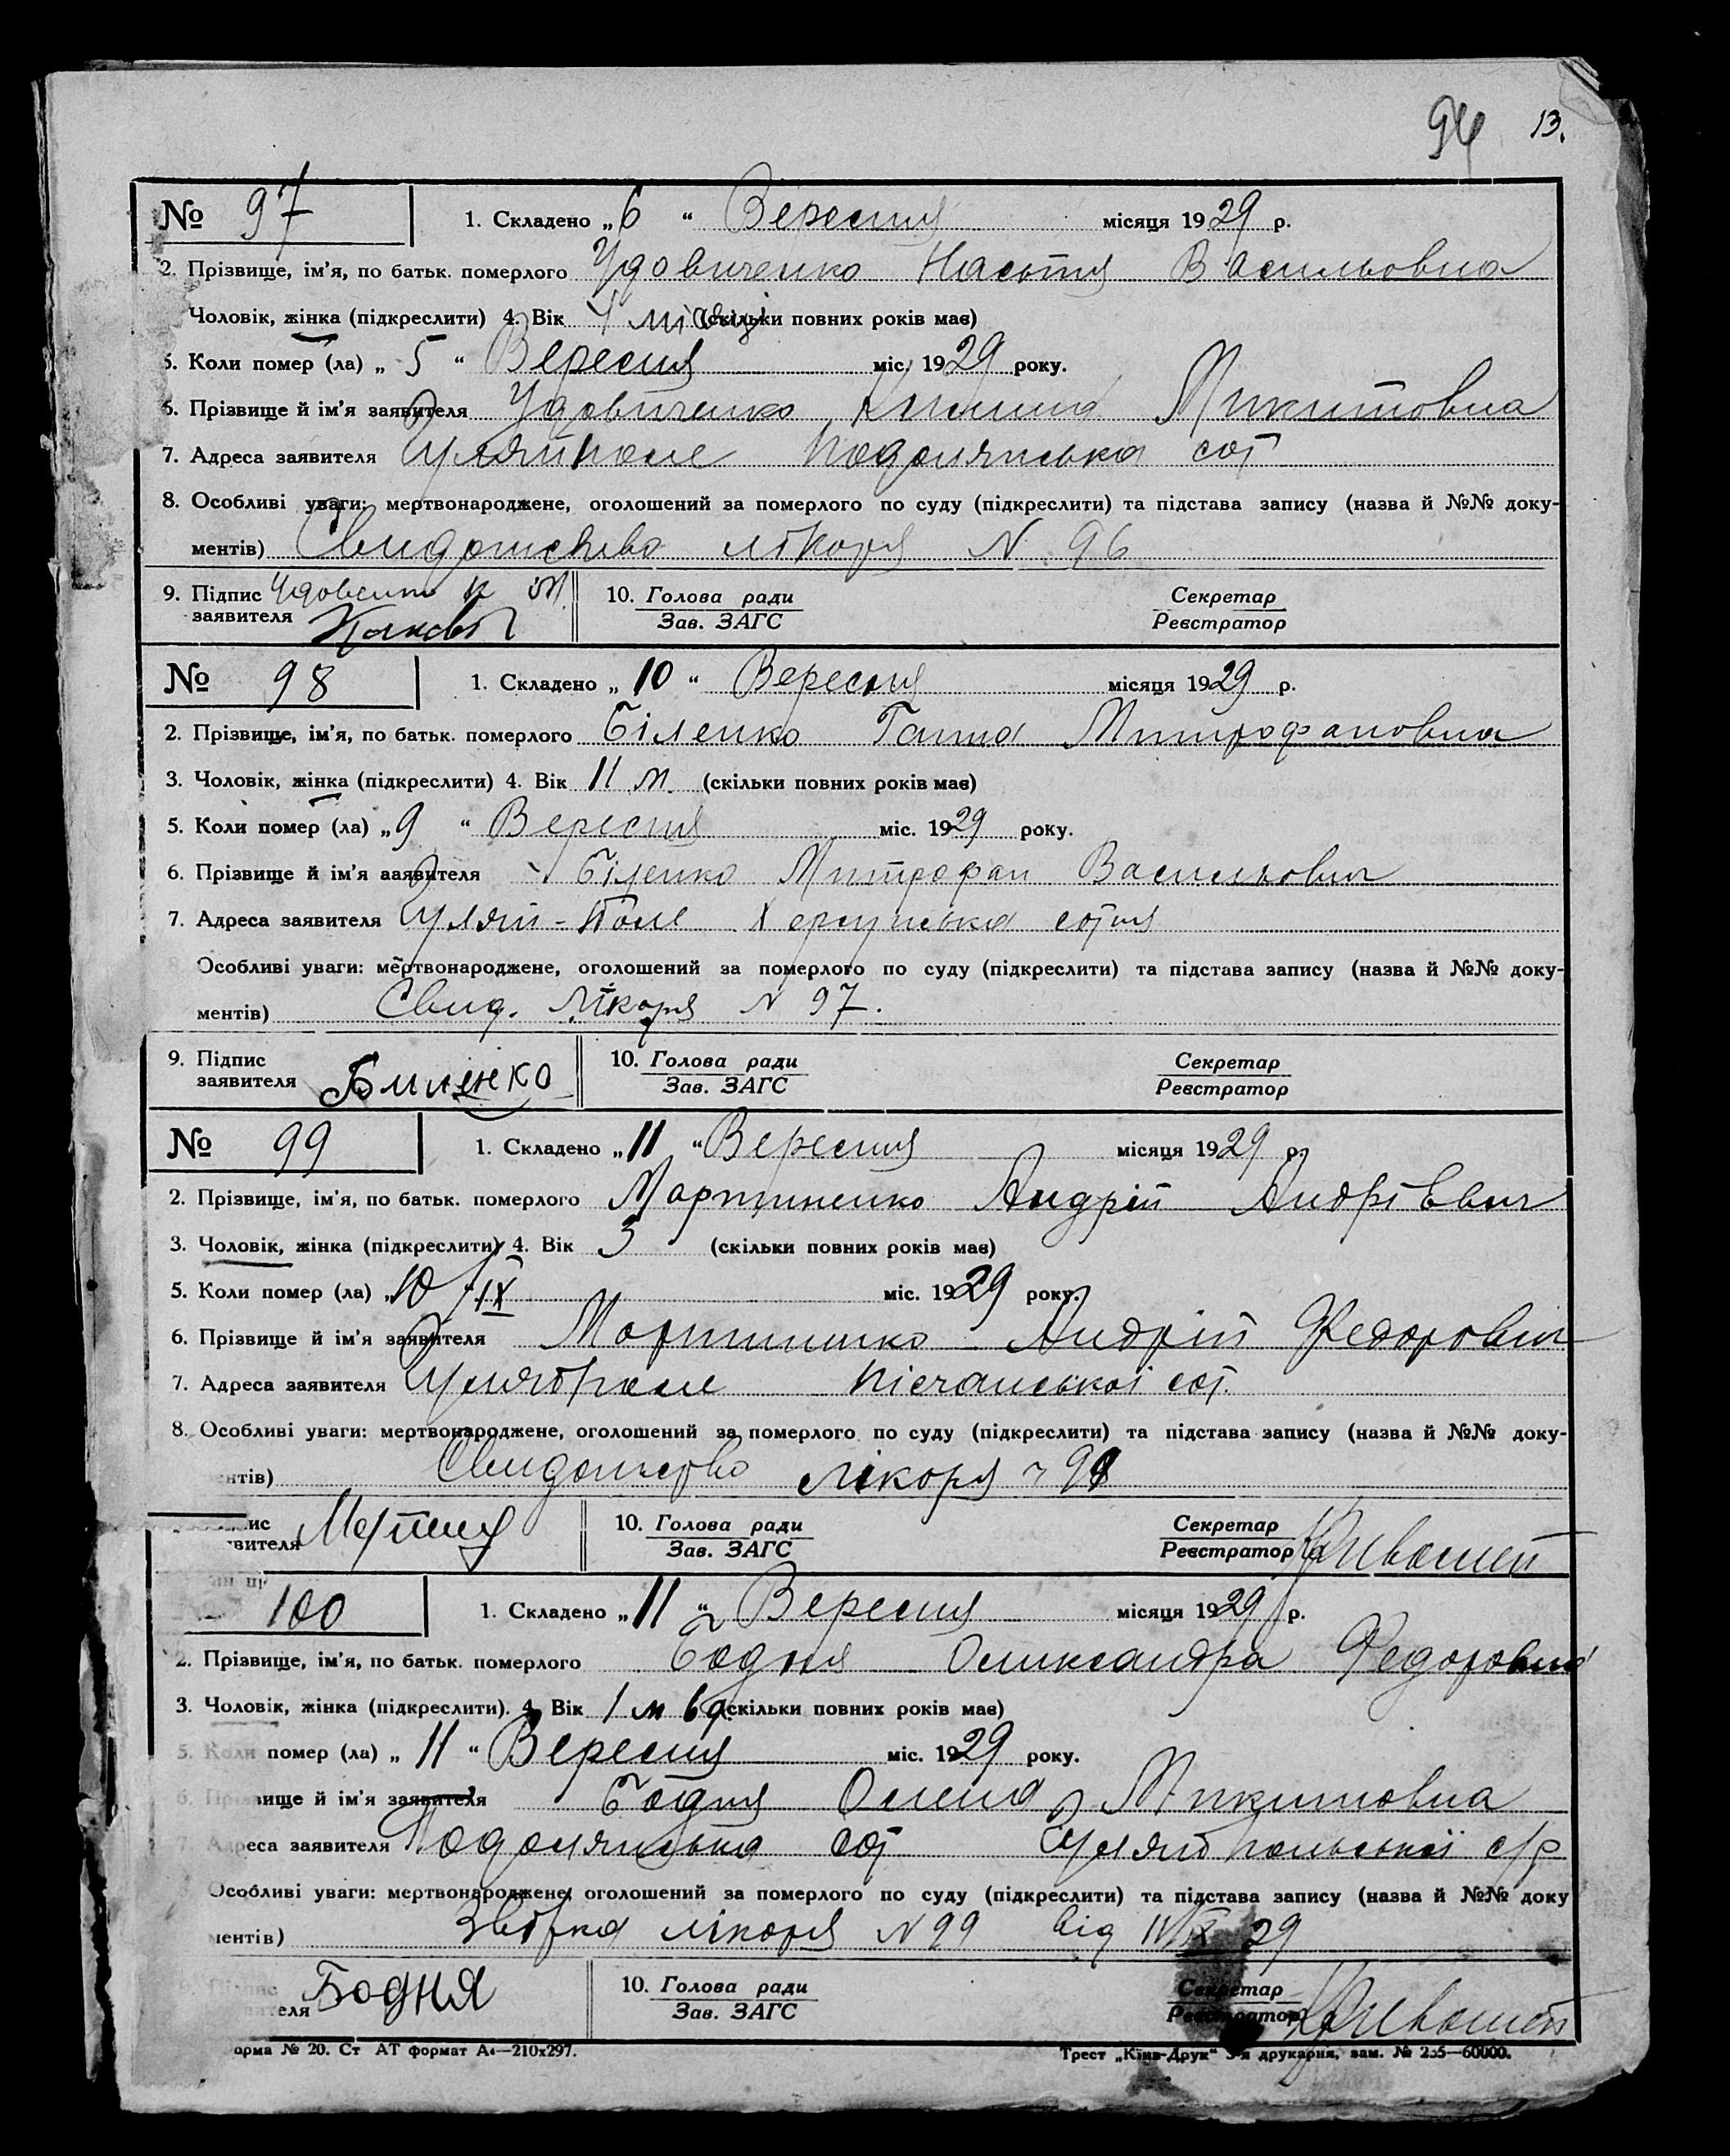 94 13.
№ 97 1. Складено „6“ Вересня місяця 1929 р.
2. Прізвище, ім'я, по батьк. померлого Удовиченко Настя Васильовна
Чоловік, жінка (підкреслити) 4. Вік 4 місяці (скільки повних років має)
5. Коли помер (ла) „5“ Вересня міс. 1929 року.
6. Прізвище й ім'я заявителя Удовиченко Микитовна
7. Адреса заявителя Гуляйполе Подолянська сот
8. Особливі уваги: мертвонароджене, оголошений за померлого по суду (підкреслити) та підстава запису (назва й №№ доку-
ментів) Свидоцтво лікаря N 96
9. Підпис 10. Голова ради Секретар
заявителя Зав. ЗАГС Реєстратор
№ 98 1. Складено „10“ Вересня місяця 1929 р.
2. Прізвище, ім'я, по батьк. померлого Біленко Ганна Митрофановна
3. Чоловік, жінка (підкреслити) 4. Вік 11 м. (скільки повних років має)
5. Коли помер (ла) „9“ Вересня міс. 1929 року.
6. Прізвище й ім'я заявителя Біленко Митрофан Васильович
7. Адреса заявителя Гуляй-Поле Херсунська сотня
Особливі уваги: мертвонароджене, оголошений за померлого по суду (підкреслити) та підстава запису (назва й №№ доку-
ментів) Свид. Лікаря N 97.
9. Підпис 10. Голова ради Секретар
заявителя Биленко Зав. ЗАГС Реєстратор
№ 99 1. Складено „11“ Вересня місяця 1929 р.
2. Прізвище, ім'я, по батьк. померлого Мартиненко Андрій Андрієвич
3. Чоловік, жінка (підкреслити) 4. Вік 3 (скільки повних років має)
5. Коли помер (ла) „10/IX міс. 1929 року.
6. Прізвище й ім'я заявителя Мартиненко Андрій Федорович
7. Адреса заявителя Гуляйполе Пісчанської сот.
8. Особливі уваги: мертвонароджене, оголошений за померлого по суду (підкреслити) та підстава запису (назва й №№ доку-
ентів) Свидоцтво лікаря 98
ис 10. Голова ради Секретар
явителя Зав. ЗАГС Реєстратор
100 1. Складено „11“ Вересня місяця 1929 р.
2. Прізвище, ім'я, по батьк. померлого Бодня Олександра Федоровна
3. Чоловік, жінка (підкреслити). 4. Вік 1 м 6 д. (скільки повних років має)
5. Коли помер (ла) „11“ Вересня міс. 1929 року.
6. Прізвище й ім'я заявителя Бодня Олена Микитовна
7. Адреса заявителя Подолянська сот Гуляйпольської с/р
Особливі уваги: мертвонароджене, оголошений за померлого по суду (підкреслити) та підстава запису (назва й №№ доку
ментів) Звістка лікаря N 99 від 11/IX 29
9. Підпис 10. Голова ради Секретар
теля Бодня Зав. ЗАГС Реєстратор
орма № 20. Ст АТ формат А4—210х297. Трест „Київ-Друк“ 3-я друкарня, зам. № 235—60000.